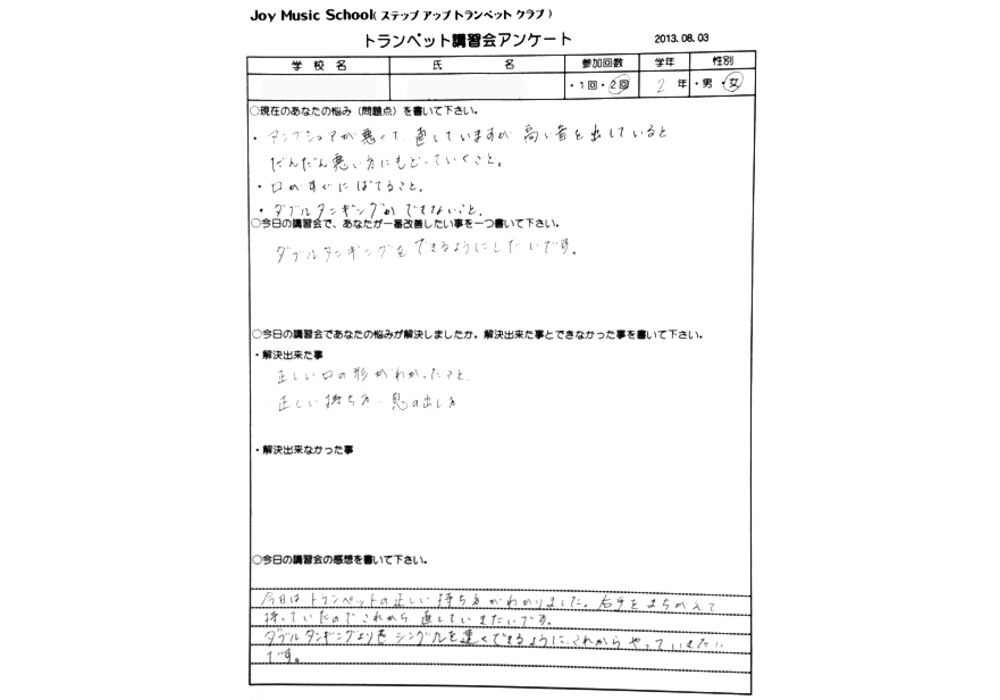 Joy Music School(ステップ アップ トランペット クラブ)
トランペット講習会アンケート 2013.08.03
学 校 名 氏 名 参加回数 学年 性別
・1回・2回 2 年 ・男・女
○現在のあなたの悩み(問題点)を書いて下さい。
・アンブシュアが悪くて、直していますが 高い音を出していると
だんだん悪い方にもどっていくこと。
・口がすぐにばてること。
・ダブルタンギングができないこと。
○今日の講習会で、あなたが一番改善したい事を一つ書いて下さい。
ダブルタンギングをできるようにしたいです。
○今日の講習会であなたの悩みが解決しましたか。解決出来た事とできなかった事を書いて下さい。
・解決出来た事
正しい口の形がわかったこと。
・正しい持ち方・息の出し方
・解決出来なかった事
○今日の講習会の感想を書いて下さい。
今日はトランペットの正しい持ち方がわかりました。右手をまちがえて
持っていたのでこれから直していきたいです。
ダブルタンギングよりもシングルを速くできるように、これからやっていきたい
です。